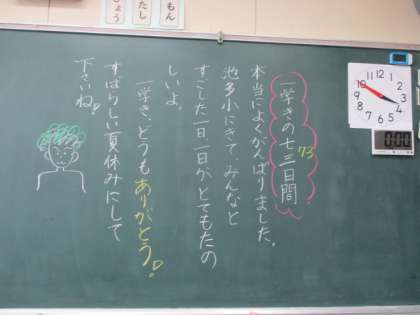 もん
たし
ょう
一学きの七三日間
73
本当によくがんばりました。
池多小にきて、みんなと
すごした一日一日が、とてもたの
しいよ。
一学き、どうもありがとう!
すばらしい夏休みにして
下さいね!
12
1
2
3
4
5
6
7
8
9
10
11
0:00